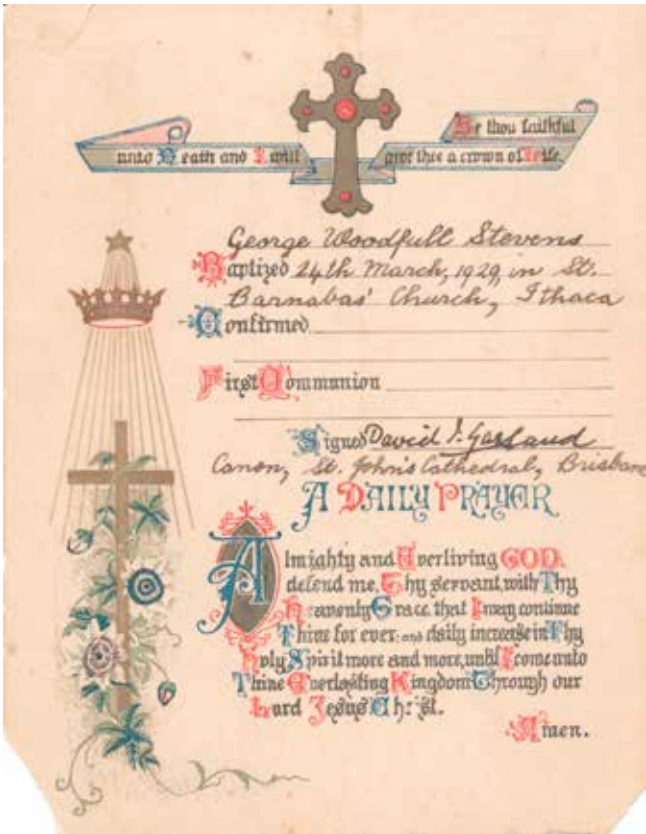 Be thou faithful
unto Death and I will give thee a crown of Life.
George Woodfull Stevens
Baptized 24th March, 1929, in St.
Barnabas' Church, Ithaca
Confirmed
First Communion
Signed David J. Garland
Canon, St. John's Cathedral, Brisbane
A DAILY PRAYER
Almighty and Everliving GOD,
defend me, Thy servant, with Thy
Heavenly Grace, that I may continue
Thine for ever: and daily increase in Thy
Holy Spirit more and more, until I come unto
Thine Everlasting Kingdom Through our
Lord Jesus Christ.
Amen.